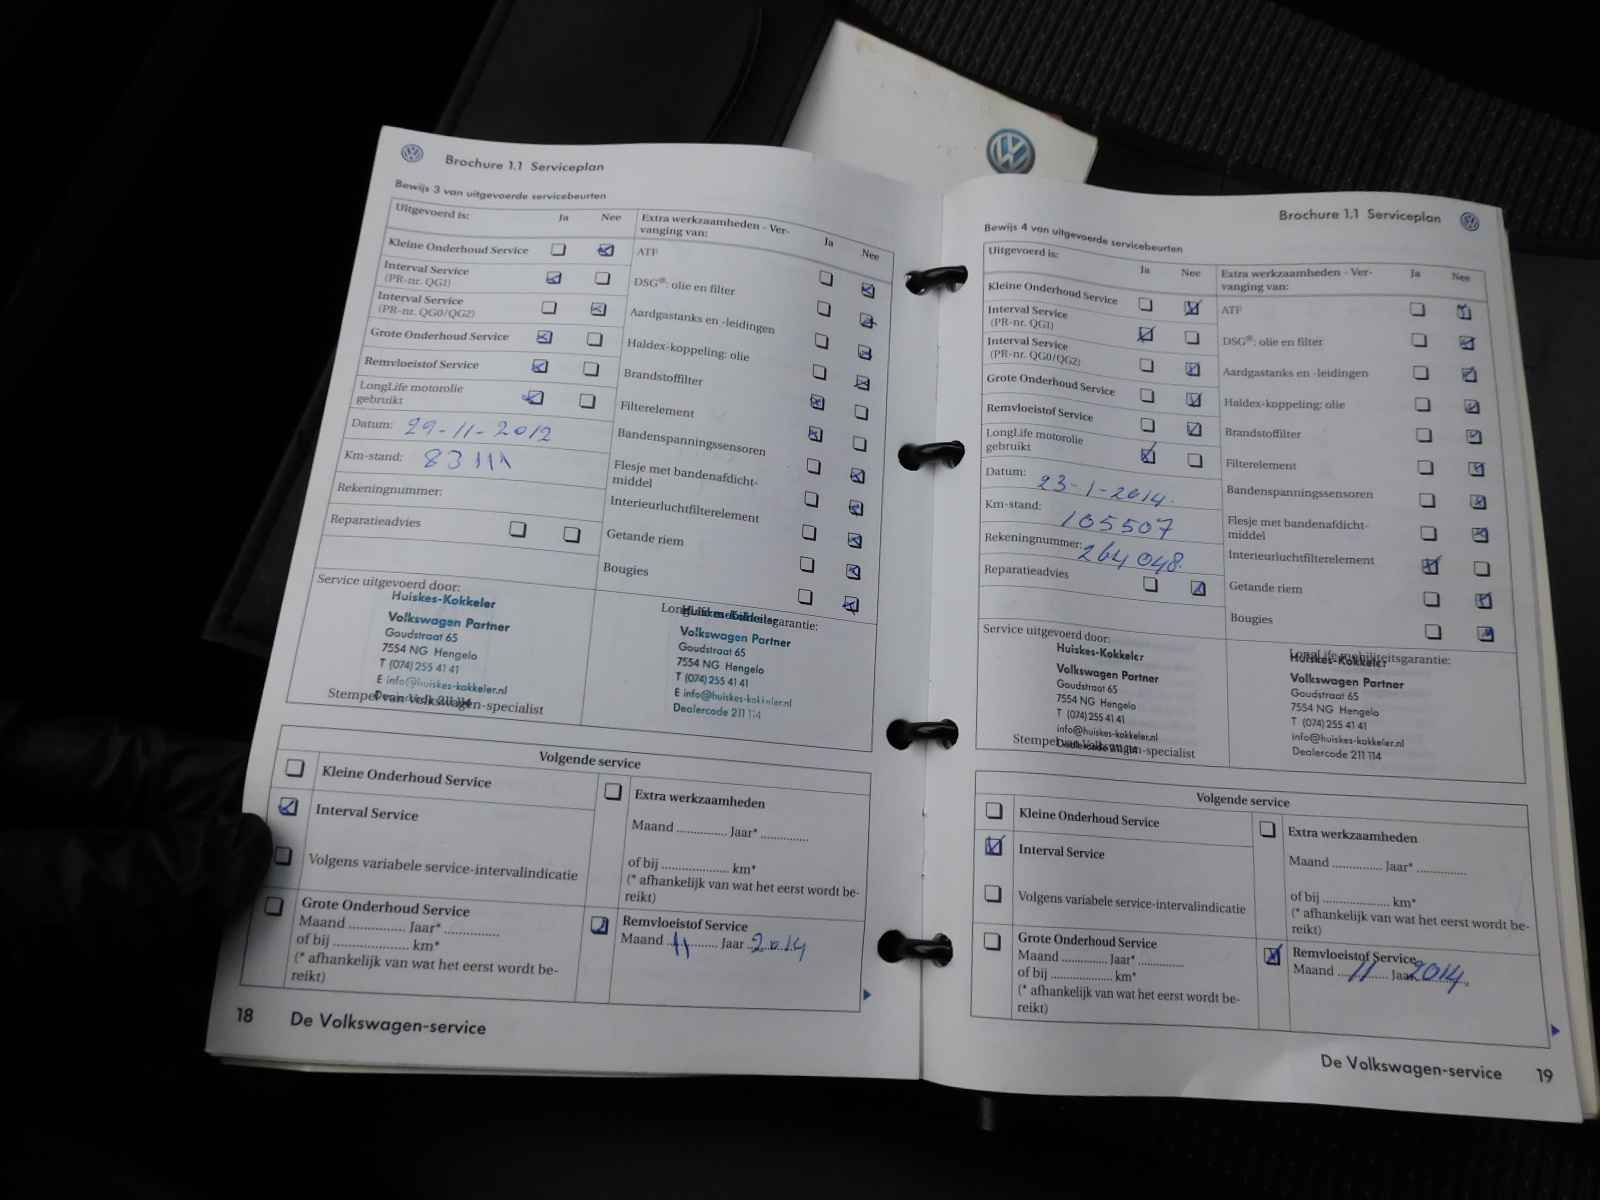 Brochure 1.1 Serviceplan
Bewijs 3 van uitgevoerde servicebeurten
Uitgevoerd is: Ja Nee
Kleine Onderhoud Service
Interval Service
(PR-nr. QG1)
Interval Service
(PR-nr. QG0/QG2)
Grote Onderhoud Service
Remvloeistof Service
LongLife motorolie
gebruikt
Datum: 29-11-2012
Km-stand: 83111
Rekeningnummer:
Reparatieadvies
Extra werkzaamheden - Ver-
vanging van: Ja Nee
ATF
DSG®: olie en filter
Aardgastanks en -leidingen
Haldex-koppeling: olie
Brandstoffilter
Filterelement
Bandenspanningssensoren
Flesje met bandenafdicht-
middel
Interieurluchtfilterelement
Getande riem
Bougies
Service uitgevoerd door:
Huiskes-Kokkeler
Volkswagen Partner
Goudstraat 65
7554 NG Hengelo
T (074) 255 41 41
E info@huiskes-kokkeler.nl
Dealercode 211 114
Stempel van Volkswagen-specialist
LongLife mobiliteitsgarantie:
Huiskes-Kokkeler
Volkswagen Partner
Goudstraat 65
7554 NG Hengelo
T (074) 255 41 41
E info@huiskes-kokkeler.nl
Dealercode 211 114
Volgende service
Kleine Onderhoud Service
Interval Service
Volgens variabele service-intervalindicatie
Grote Onderhoud Service
Maand ............... Jaar* ...............
of bij .................... km*
(* afhankelijk van wat het eerst wordt be-
reikt)
Extra werkzaamheden
Maand ............... Jaar* ..............
of bij .................... km*
(* afhankelijk van wat het eerst wordt be-
reikt)
Remvloeistof Service
Maand 11 Jaar 2014
18 De Volkswagen-service
Brochure 1.1 Serviceplan
Bewijs 4 van uitgevoerde servicebeurten
Uitgevoerd is: Ja Nee
Kleine Onderhoud Service
Interval Service
(PR-nr. QG1)
Interval Service
(PR-nr. QG0/QG2)
Grote Onderhoud Service
Remvloeistof Service
LongLife motorolie
gebruikt
Datum: 23-1-2014.
Km-stand: 105507
Rekeningnummer: 264048.
Reparatieadvies
Extra werkzaamheden - Ver-
vanging van: Ja Nee
ATF
DSG®: olie en filter
Aardgastanks en -leidingen
Haldex-koppeling: olie
Brandstoffilter
Filterelement
Bandenspanningssensoren
Flesje met bandenafdicht-
middel
Interieurluchtfilterelement
Getande riem
Bougies
Service uitgevoerd door:
Huiskes-Kokkeler
Volkswagen Partner
Goudstraat 65
7554 NG Hengelo
T (074) 255 41 41
info@huiskes-kokkeler.nl
Dealercode 211 114
Stempel van Volkswagen-specialist
LongLife mobiliteitsgarantie:
Huiskes-Kokkeler
Volkswagen Partner
Goudstraat 65
7554 NG Hengelo
T (074) 255 41 41
info@huiskes-kokkeler.nl
Dealercode 211 114
Volgende service
Kleine Onderhoud Service
Interval Service
Volgens variabele service-intervalindicatie
Grote Onderhoud Service
Maand .............. Jaar* ..............
of bij .................... km*
(* afhankelijk van wat het eerst wordt be-
reikt)
Extra werkzaamheden
Maand .............. Jaar* ..............
of bij .................... km*
(* afhankelijk van wat het eerst wordt be-
reikt)
Remvloeistof Service
Maand 11 Jaar 2014
De Volkswagen-service 19